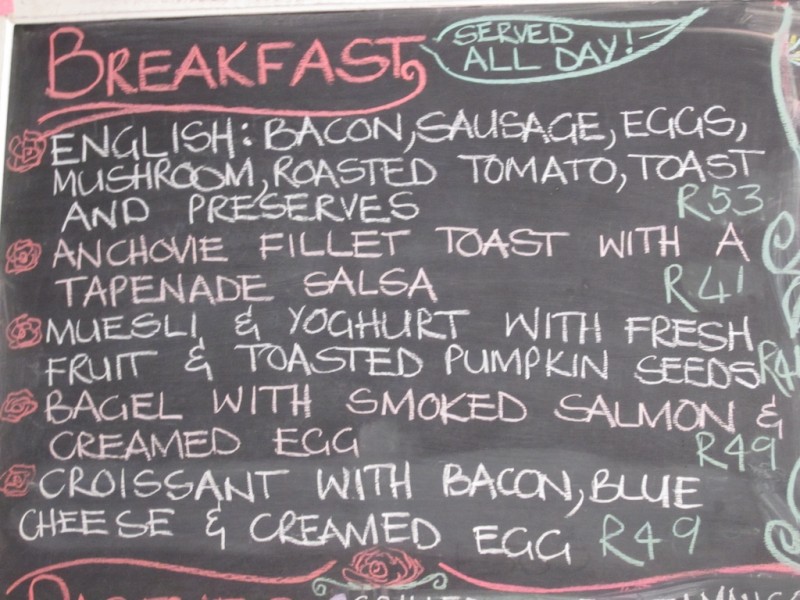 BREAKFAST
SERVED
ALL DAY!
ENGLISH: BACON, SAUSAGE, EGGS,
MUSHROOM, ROASTED TOMATO, TOAST
AND PRESERVES R53
ANCHOVIE FILLET TOAST WITH A
TAPENADE SALSA R41
MUESLI & YOGHURT WITH FRESH
FRUIT & TOASTED PUMPKIN SEEDS
BAGEL WITH SMOKED SALMON &
CREAMED EGG R49
CROISSANT WITH BACON, BLUE
CHEESE & CREAMED EGG R49